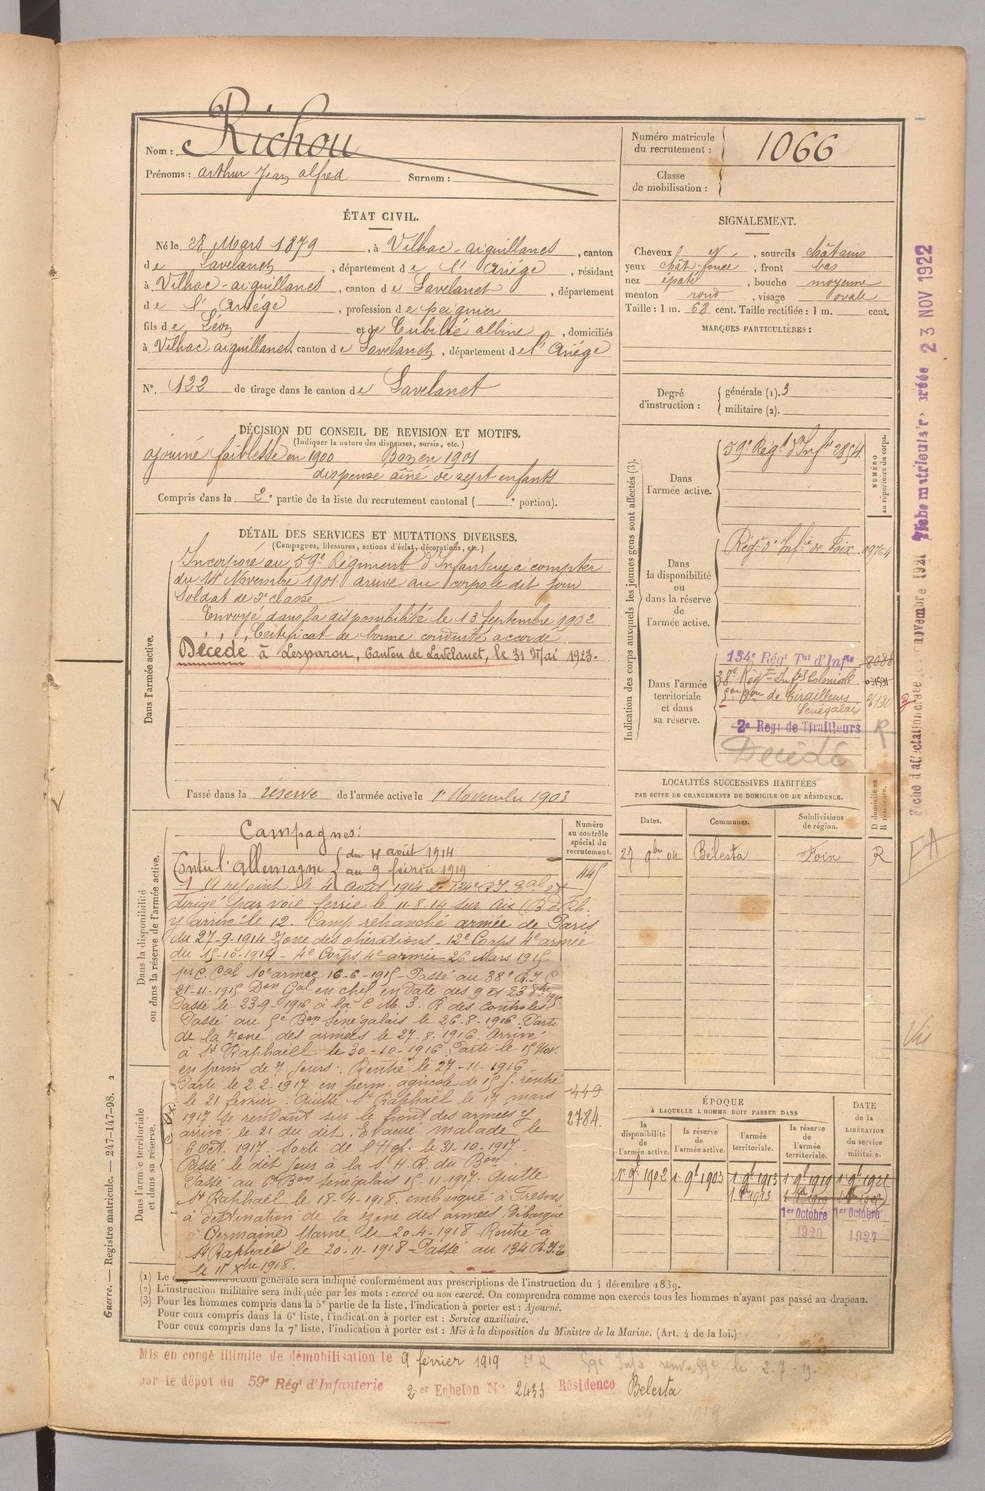 Nom : Richou
Prénoms : arthur Jean alfred Surnom :
Numéro matricule
du recrutement : 1066
Classe
de mobilisation :
ÉTAT CIVIL.
Né le 28 Mars 1879, à Vilhac-aiguillanes, canton
de Lavelanet, département de l'Ariége, résidant
à Vilhac-aiguillanes, canton de Lavelanet, département
de l'Ariége, profession de peignier
fils de Léon et de Cubilié albine, domiciliés
à Vilhac aiguillanes, canton de Lavelanet, département de l'Ariége
N° 122 de tirage dans le canton de Lavelanet
SIGNALEMENT.
Cheveux , sourcils châtains
yeux chât. foncé, front bas
nez épaté, bouche moyenne
menton rond, visage ovale
Taille : 1 m. 68 cent. Taille rectifiée : 1 m. cent.
MARQUES PARTICULIÈRES :
Degré
d'instruction :
générale (1). 3
militaire (2).
DÉCISION DU CONSEIL DE REVISION ET MOTIFS.
(Indiquer la nature des dispenses, sursis, etc.)
ajourné faiblesse en 1900 Bon en 1901
dispensé aîné de sept enfants
Compris dans la 2e partie de la liste du recrutement cantonal ( e portion).
DÉTAIL DES SERVICES ET MUTATIONS DIVERSES.
(Campagnes, blessures, actions d'éclat, décorations, etc.)
Dans l'armée active.
Incorporé au 59e Régiment d'Infanterie à compter
du 14 Novembre 1901 arrivé au corps le dit jour
Soldat de 2e classe
Envoyé dans la disponibilité le 13 Septembre 1902
Certificat de bonne conduite accordé
Décédé à Lesparou, Canton de Lavelanet, le 31 Mai 1923.
Passé dans la réserve de l'armée active le 1er Novembre 1903
Indication des corps auxquels les jeunes gens sont affectés (3).
NUMÉRO
au répertoire du corps.
Dans
l'armée active.
59e Régt d'Infie 2854
Dans
la disponibilité
ou
dans la réserve
de
l'armée active.
Régt d'Infie de Foix
Dans l'armée
territoriale
et dans
sa réserve.
134e Régt Tal d'Infie
38e Régt Infie Coloniale
5e Bon de tirailleurs
Sénégalais
2e Régt de Tirailleurs R
Décédé
Fiche d'affectation créée novembre 1921 Fiche matriculaire créée 23 NOV 1922
LOCALITÉS SUCCESSIVES HABITÉES
PAR SUITE DE CHANGEMENTS DE DOMICILE OU DE RÉSIDENCE.
Dates. Communes. Subdivisions
de région.
D domicile ou
R résidence.
27 9bre 04 Bélesta Foix R
Dans la disponibilité
ou dans la réserve de l'armée active.
Numéro
au contrôle
spécial du
recrutement.
Campagnes :
Contre l'Allemagne du 4 août 1914
au 9 février 1919
A rejoint le 4 août 1914 le 134e R.I. Tal et
dirigé par voie ferrée le 11-8-14 sur
y arrivé le 12. Camp retranché armée de Paris
du 27-9-1914 Zone des opérations - 12e Corps 4e armée
du 15-10-1914 - 4e Corps 4e armée 26 Mars 1915
1er C. Cal 10e armée 16-6-1915 - Passé au 38e R.I.C
21-11-1915 Don Gal en chef en date des 9 et 23 8bre
Passé le 23-9-1916 à la C M. 3.
Passé au 5e Bon Sénégalais le 26-8-1916. Parti
de la zone des armées le 27-8-1916. Arrivé
à St Raphaël le 30-10-1916. Parti le 15 Nov.
en perm de 7 jours. Rentré le 27-11-1916 -
Parti le 2.2.1917 en perm. agricole de 15 j. rentré
le 21 février. Quitté St Raphaël le 17 mars
1917 se rendant sur le front des armées y
arrivé le 21 du dit. Evacué malade le
6 Oct. 1917. Sorti de l'Hop. le 31-10-1917.
Passé le dit jour à la S.H.R. du Bon
Passé au 6e Bon Sénégalais 15-11-1917. Quitté
St Raphaël le 18-4-1918. embarqué à Fresnes
à destination de la zone des armées. Débarqué
à Germaine Marne le 20-4-1918 Rentré à
St Raphaël le 20-11-1918 - Passé au 134 R.I.T
le 11 Xbre 1918.
Dans l'armée territoriale
et dans sa réserve.
449
2784
ÉPOQUE
À LAQUELLE L'HOMME DOIT PASSER DANS
DATE
DE LA
LIBÉRATION
du service
militaire.
la
disponibilité
de
l'armée active.
la réserve
de
l'armée active.
l'armée
territoriale.
la réserve
de
l'armée
territoriale.
1er 9bre 1902 1er 9bre 1903 1er 9bre 1913 1er 9bre 1919 1er 9bre 1921
1er Octobre 1er Octobre
1920 1927
(1) Le degré d'instruction générale sera indiqué conformément aux prescriptions de l'instruction du 4 décembre 1889.
(2) L'instruction militaire sera indiquée par les mots : exercé ou non exercé. On comprendra comme non exercés tous les hommes n'ayant pas passé au drapeau.
(3) Pour les hommes compris dans la 5e partie de la liste, l'indication à porter est : Ajourné.
Pour ceux compris dans la 6e liste, l'indication à porter est : Service auxiliaire.
Pour ceux compris dans la 7e liste, l'indication à porter est : Mis à la disposition du Ministre de la Marine. (Art. 4 de la loi.)
Guerre. — Registre matricule. — 247-147-98. 2
Mis en congé illimité de démobilisation le 9 février 1919
par le dépôt du 59e Régt d'Infanterie 2er Echelon N° 2433 Résidence Bélesta